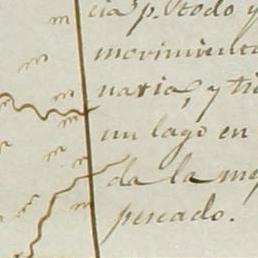 cia p.r todo y
movimiento
naria, y ti
un lago en
da la mej
pescado.